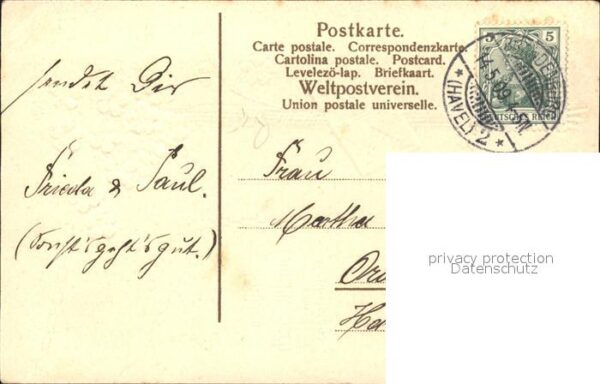 Postkarte.
Carte postale. Correspondenzkarte
Cartolina postale. Postcard.
Levelezö-lap. Briefkaart.
Weltpostverein.
Union postale universelle.
5 5
DEUTSCHES REICH
(HAVEL)
* 2 *
sendet Dir
Frieda & Paul.
(Sonst's geht's gut.)
Frau
Martha
privacy protection
Datenschutz